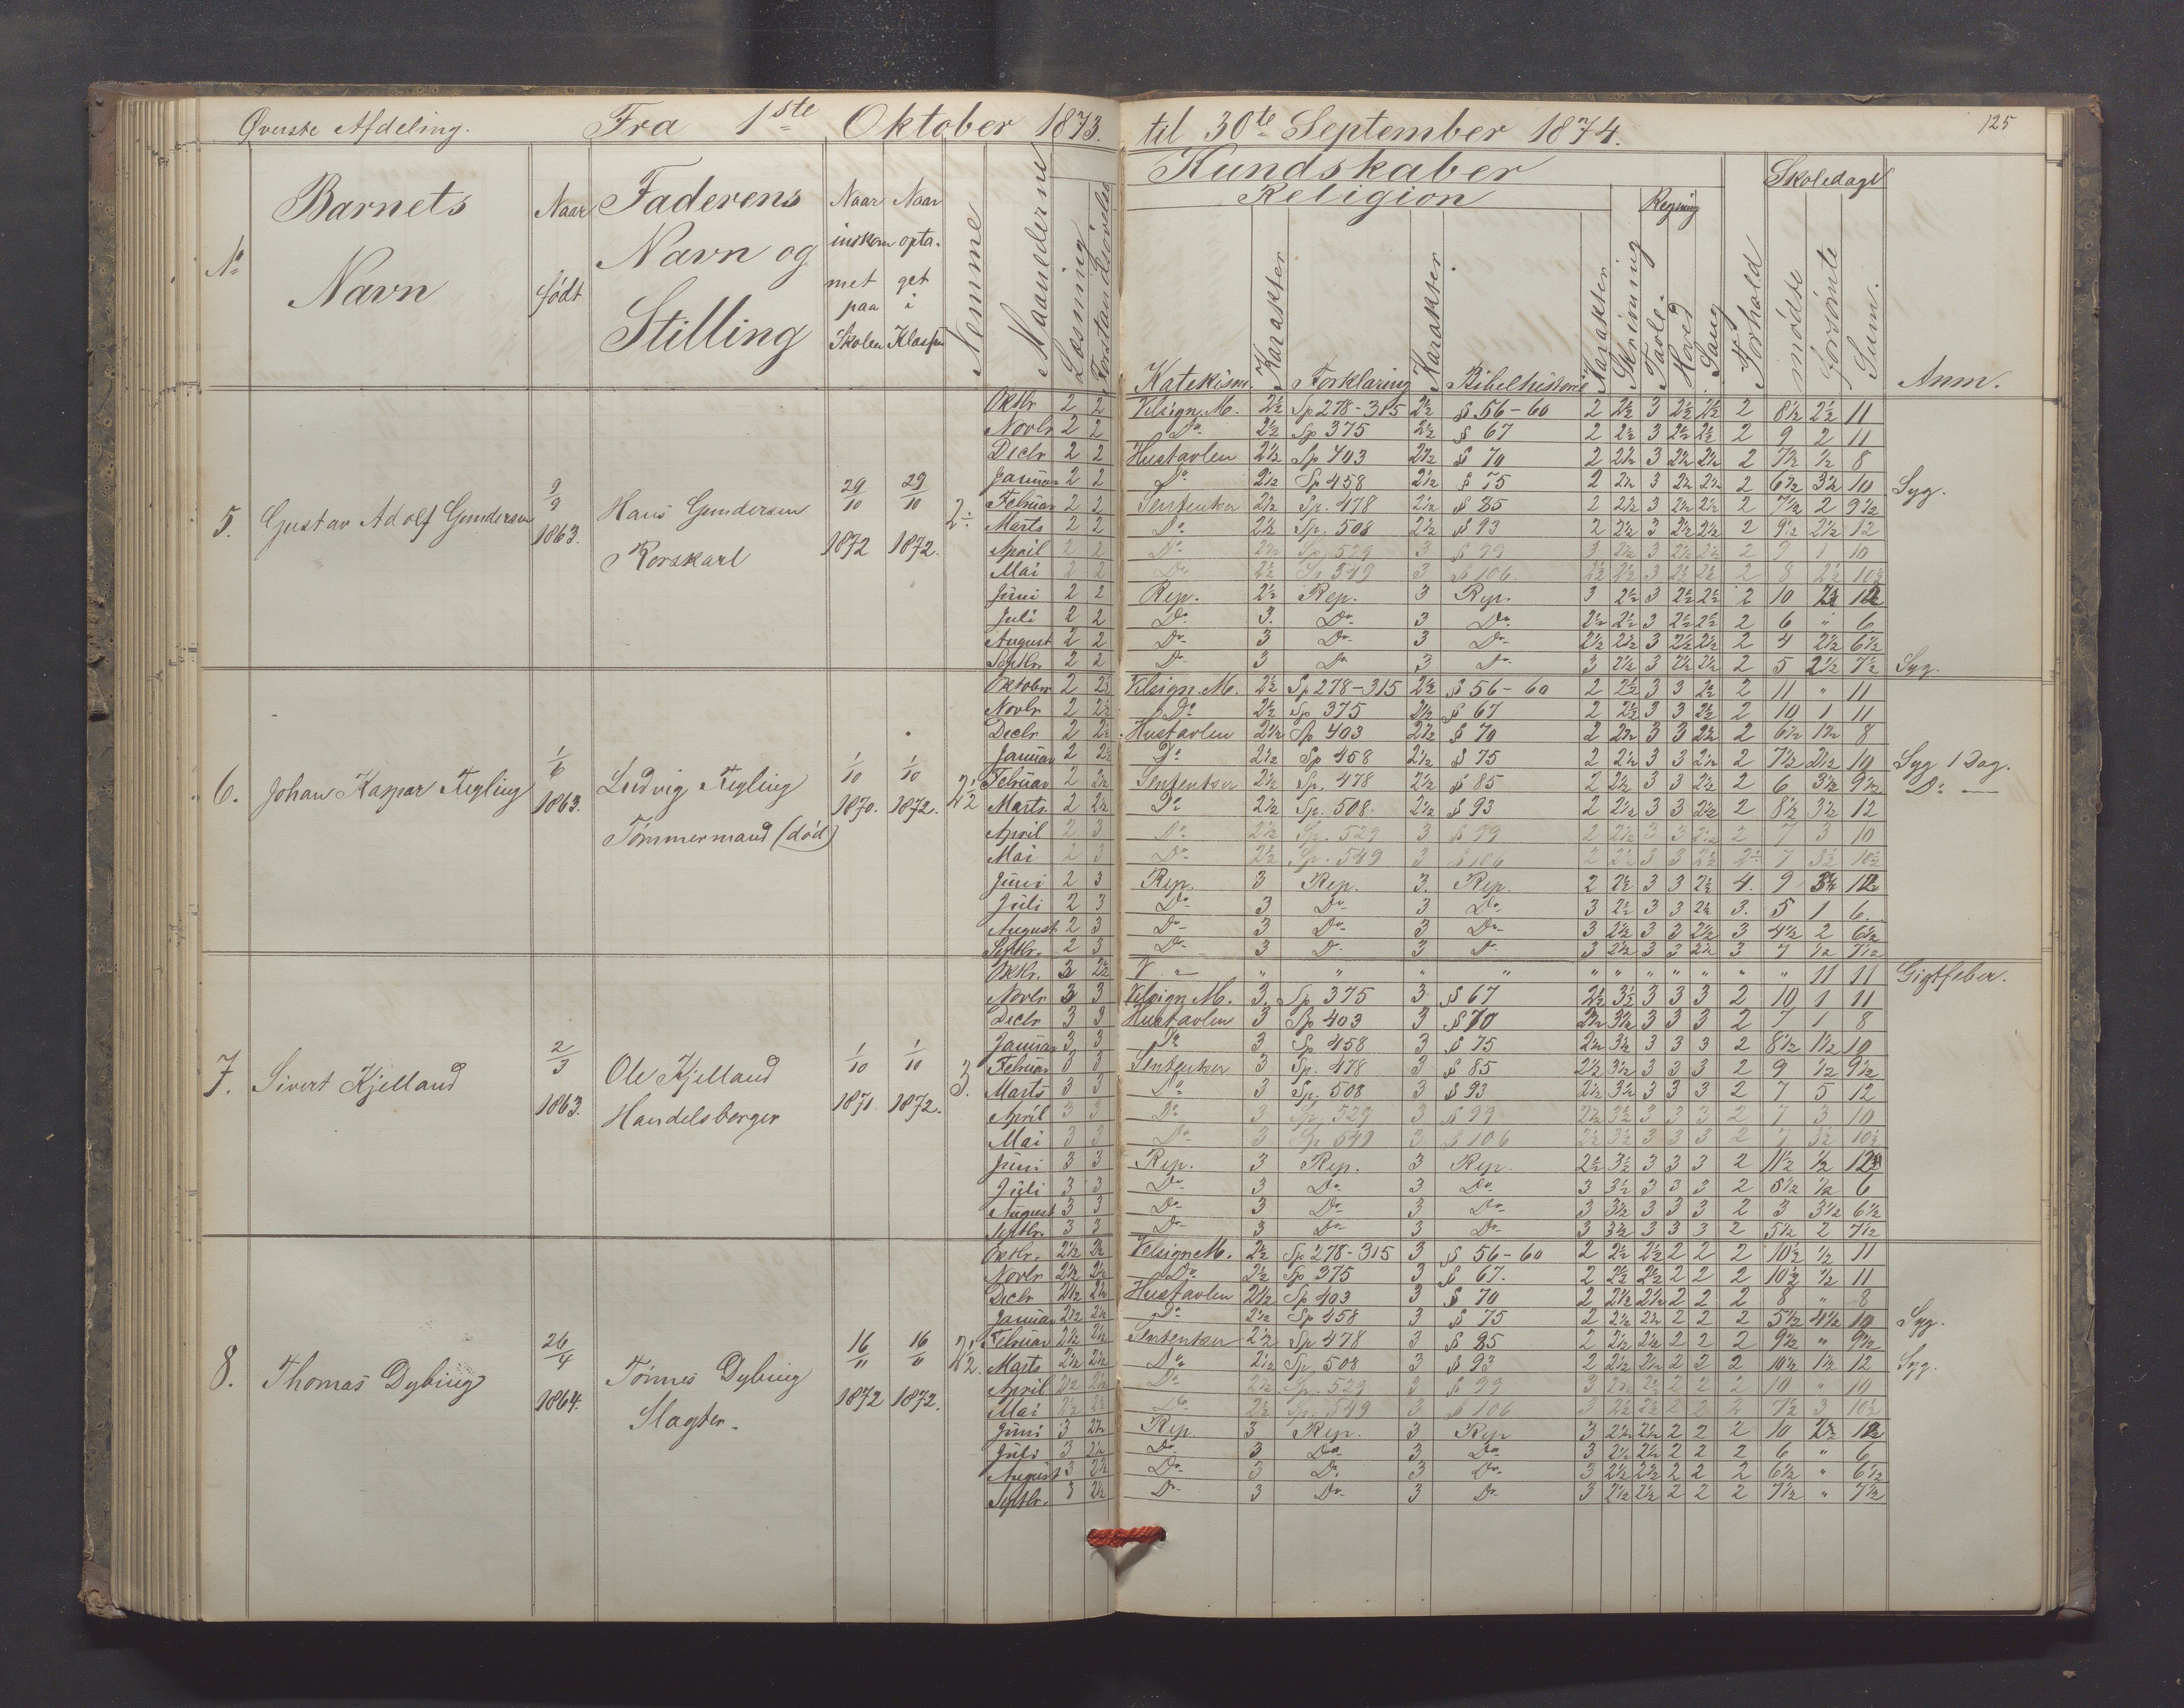 Øverste Afdeling. Fra 1ste Oktober 1873. til 30te September 1874. 125
Kundskaber
Religion Regning Skoledage
No Barnets Navn Naar født Faderens Navn og Stilling Naar indkommet paa Skolen Naar optaget i Klassen Nemme Maanederne Læsning Forstandsøvelse Katekism. Karakter Forklaring Karakter. Bibelhistorie Karakter Skrivning Tavle. Hoved Sang Forhold mødte forsømte Sum. Anm.
5. Gustav Adolf Gundersen 9/9 1863. Hans Gundersen Rorskarl 29/10 1872 29/10 1872. 2÷
Oktbr 2 2 Velsign. M. 2½ Sp 278-315 2½ § 56-60 2 2½ 3 2½ 2½ 2 8½ 2½ 11
Novbr 2 2 Do 2½ Sp 375 2½ § 67 2 2½ 3 2½ 2½ 2 9 2 11
Decbr 2 2 Hustavlen 2½ Sp 403 2½ § 70 2 2½ 3 2½ 2½ 2 7½ ½ 8
Januar 2 2 Do 2½ Sp 458 2½ § 75 2 2½ 3 2½ 2½ 2 6½ 3½ 10 Syg.
Februar 2 2 Sententser 2½ Sp. 478 2½ § 85 2 2½ 3 2½ 2½ 2 7½ 2 9½
Marts 2 2 Do 2½ Sp. 508 2½ § 93 2 2½ 3 2½ 2½ 2 9½ 2½ 12
April 2 2 Do 2½ Sp. 529 3 § 99 3 2½ 3 2½ 2½ 2 9 1 10
Mai 2 2 Do 2½ Sp 549 3 § 106. 2½ 2½ 3 2½ 2½ 2 8 2½ 10½
Juni 2 2 Rep. 2½ Rep. 3 Rep. 3 2½ 3 2½ 2½ 2 10 12
Juli 2 2 Do 3. Do 3 Do 2½ 2½ 3 2½ 2½ 2 6 " 6
August 2 2 Do 3 Do 3 Do 2½ 2½ 3 2½ 2½ 2 4 2½ 6½
Septbr. 2 2 Do 3 Do 3 Do 3 2½ 3 2½ 2½ 2 5 2½ 7½ Syg.
6. Johan Kaspar Tegling 1/6 1863. Ludvig Tegling Tømmermand (død) 1/10 1870. 1/10 1872. 2½
Oktober 2 2½ Velsign. M. 2½ Sp 278-315 2½ § 56-60 2 2½ 3 3 2½ 2 11 " 11
Novbr 2 2½ Do 2½ Sp 375 2½ § 67 2 2½ 3 3 2½ 2 10 1 11
Decbr 2 2½ Hustavlen 2½ Sp 403 2½ § 70 2 2½ 3 3 2½ 2 6½ 1½ 8
Januar 2 2½ Do 2½ Sp 458 2½ § 75 2 2½ 3 3 2½ 2 7½ 2½ 10 Syg 1 Dag.
Februar 2 2½ Sententser 2½ Sp. 478 2½ § 85 2 2½ 3 3 2½ 2 6 3½ 9½ Do —
Marts. 2 2½ Do 2½ Sp. 508. 2½ § 93 2 2½ 3 3 2½ 2 8½ 3½ 12
April 2 3 Do 2½ Sp. 529 3 § 99 2 2½ 3 3 2½ 2 7 3 10
Mai 2 3 Do 2½ Sp. 549 3 § 106 2 2½ 3 3 2½ 2÷ 7 3½ 10½
Juni 2 3 Rep. 3 Rep. 3. Rep. 2 2½ 3 3 2½ 4. 9 12
Juli 2 3 Do 3 Do 3 Do 3 2½ 3 3 2½ 3. 5 1 6.
August 2 3 Do 3 Do 3 Do 3 2½ 3 3 2½ 3 4½ 2 6½
Septbr. 2 3 Do 3 D. 3 D 3 2½ 3 3 2½ 3 7 ½ 7½
7. Sivert Kjelland 2/3 1863. Ole Kjelland Handelsborger 1/10 1871. 1/10 1872. 3.
Oktbr. 3 2½ " " " " " " " " " " " " 11 11 Gigtfeber.
Novbr 3 3 Velsign M. 3. Sp 375 3 § 67 2½ 3½ 3 3 3 2 10 1 11
Decbr 3 3 Hustavlen 3 Sp 403 3 § 70 2½ 3½ 3 3 3 2 7 1 8
Januar 3 3 Do 3 Sp 458 3 § 75 2½ 3½ 3 3 3 2 8½ 1½ 10
Februar 3 3 Sententser 3 Sp. 478 3 § 85 2½ 3½ 3 3 3 2 9 ½ 9½
Marts 3 3 Do 3 Sp. 508 3 § 93 2½ 3½ 3 3 3 2 7 5 12
April 3 3 Do 3 Sp. 529 3 § 99 2½ 3½ 3 3 3 2 7 3 10
Mai 3 3 Do 3 Sp 549 3 § 106 2½ 3½ 3 3 3 2 7 3½ 10½
Juni 3 3 Rep. 3 Rep. 3 Rep. 2½ 3½ 3 3 3 2 11½ ½ 12
Juli 3 3 Do 3 Do 3 Do 3 3½ 3 3 3 2 5½ ½ 6
August 3 3 Do 3 Do 3 Do 3 3½ 3 3 3 2 3 3½ 6½
Septbr. 3 3 Do 3 Do 3 Do 3 3½ 3 3 3 2 5½ 2 7½
8. Thomas Dybing 26/4 1864. Tønnes Dybing Slagter. 16/11 1872 16/11 1872. 2½.
Oktbr. 2½ 2½ Velsign M. 2½ Sp 278-315 3 § 56-60 2 2½ 2½ 2 2 2 10½ ½ 11
Novbr 2½ 2½ Do 2½ Sp 375 3 § 67. 2 2½ 2½ 2 2 2 10½ ½ 11
Decbr 2½ 2½ Hustavlen 2½ Sp 403 3 § 70 2 2½ 2½ 2 2 2 8 " 8
Januar 2½ 2½ Do 2½ Sp 458 3 § 75 2 2½ 2½ 2 2 2 5½ 4½ 10 Syg.
Februar 2½ 2½ Sententser 2½ Sp 478 3 § 85 2 2½ 2½ 2 2 2 9½ " 9½
Marts 2½ 2½ Do 2½ Sp. 508 3 § 93 2 2½ 2½ 2 2 2 10½ 1½ 12 Syg.
April 2½ 2½ Do 2½ Sp. 529 3 § 99 3 2½ 2½ 2 2 2 10 " 10
Mai 2½ 2½ Do 2½ Sp. 549 3 § 106 3 2½ 2½ 2 2 2 7½ 3 10½
Juni 3 2½ Rep 3 Rep. 3 Rep 3 2½ 2½ 2 2 2 10 12
Juli 3 2½ Do 3 Do 3 Do 3 2½ 2½ 2 2 2 6 " 6
August 3 2½ Do 3 D. 3 Do 3 2½ 2½ 2 2 2 6½ " 6½
Septbr. 3 2½ Do 3 Do 3 Do 3 2½ 2½ 2 2 2 7½ " 7½